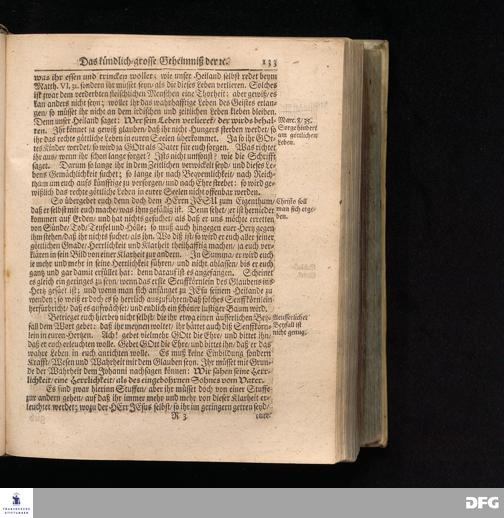 Das kündlich-grosse Geheimniß der ꝛc. 133
was ihr essen und trincken wollet; wie unser Heiland selbst redet beym
Matth. VI, 31. sondern ihr müsset seyn/ als die dieses Leben verlieren. Solches
ist zwar dem verderbten fleischlichen Menschen eine Thorheit; aber gewiß/ es
kan anders nicht seyn; wollet ihr das wahrhafftige Leben des Geistes erlan-
gen/ so müsset ihr nicht an dem irdischen und zeitlichen Leben kleben bleiben.
Denn unser Heiland saget: Wer sein Leben verlieret/ der wirds behal-
ten. Ihr könnet ja gewiß glauben/ daß ihr nicht Hungers sterben werdet/ so
ihr das rechte göttliche Leben in eurer Seelen überkommet. Ja so ihr GOt-
tes Kinder werdet/ so wird ja GOtt als Vater für euch sorgen. Was richtet
ihr aus/ wenn ihr schon lange sorget? Ists nicht umsonst? wie die Schrifft
saget. Darum so lange ihr in dem Zeitlichen verwickelt seyd/ und dieses Le-
bens Gemächlichkeit suchet; so lange ihr nach Bequemlichkeit/ nach Reich-
thum um euch aufs künfftige zu versorgen/ und nach Ehre strebet: so wird ge-
wißlich das rechte göttliche Leben in eurer Seelen nicht offenbar werden.
Marc. 8/ 35.
Sorge hindert
am göttlichen
Leben.
So übergebet euch denn doch dem HErrn JESU zum Eigenthum/
daß er selbst mit euch mache/ was ihm gefällig ist. Denn sehet/ er ist hernieder
kommen auf Erden/ und hat nichts gesuchet/ als daß er uns möchte erretten
von Sünde/ Tod/ Teufel und Hölle; so muß auch hingegen euer Hertz gegen
ihm stehen/ daß ihr nichts suchet/ als ihn. Wo diß ist/ so wird er euch aller seiner
göttlichen Gnade/ Herrlichkeit und Klarheit theilhafftig machen/ ja euch ver-
klären in sein Bild von einer Klarheit zur andern. In Summa/ er wird euch
ie mehr und mehr in seine Heerlichkeit führen/ und nicht ablassen/ bis er euch
gantz und gar damit erfüllet hat: denn darauf ist es angefangen. Scheinet
es gleich ein geringes zu seyn/ wenn das erste Senffkörnlein des Glaubens ins
Hertz gesäet ist; und wenn man sich anfänget zu JEsu seinem Heilande zu
wenden; so weiß er doch es so herrlich auszuführen/ daß solches Senffkörnlein
herfürbricht/ daß es aufwächset/ und endlich ein schöner lustiger Baum wird.
Christo soll
man sich erge-
ben.
Betrieget euch hierbey nicht selbst/ die ihr etwa einen äusserlichen Bey-
fall dem Wort gebet: daß ihr meynen woltet/ ihr hättet auch diß Senffkörn-
lein in euren Hertzen. Ach! gebet vielmehr GOtt die Ehre/ und bittet ihn/
daß er euch erleuchten wolle. Gebet GOtt die Ehre/ und bittet ihn/ daß er das
wahre Leben in euch anrichten wolle. Es muß keine Einbildung sondern
Krafft/ Wesen und Wahrheit mit dem Glauben seyn. Ihr müsset mit Grun-
de der Wahrheit dem Johanni nachsagen können: Wir sahen seine Herr-
lichkeit/ eine Herrlichkeit/ als des eingebohrnen Sohnes vom Vater.
Aeusserlicher
Beyfall ist
nicht genug.
Es sind zwar hierinn Stuffen/ aber ihr müsset doch von einer Stuffe
zur andern gehen/ auf daß ihr immer mehr und mehr von dieser Klarheit er-
leuchtet werdet; wozu der HErr JEsus selbst/ so ihr im geringern getreu seyd/
R 3
FRANCKESCHE
STIFTUNGEN
DFG